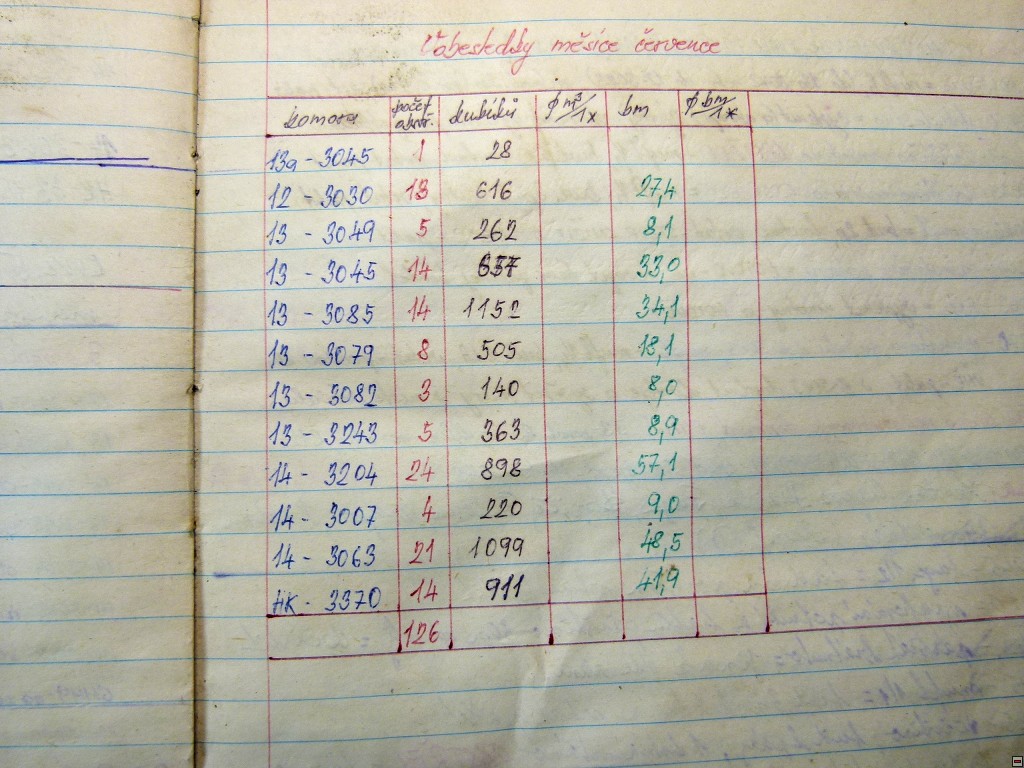 měsíce července
komora počet kubíků m³/1x bm bm/1x
13a - 3045 1 28
12 - 3030 13 616 27,4
13 - 3049 5 262 8,1
13 - 3045 14 657 33,0
13 - 3085 14 1152 34,1
13 - 3079 8 505 18,1
13 - 3082 3 140 8,0
13 - 3243 5 363 8,9
14 - 3204 24 898 57,1
14 - 3007 4 220 9,0
14 - 3063 21 1099 48,5
HK - 3370 14 911 41,9
126